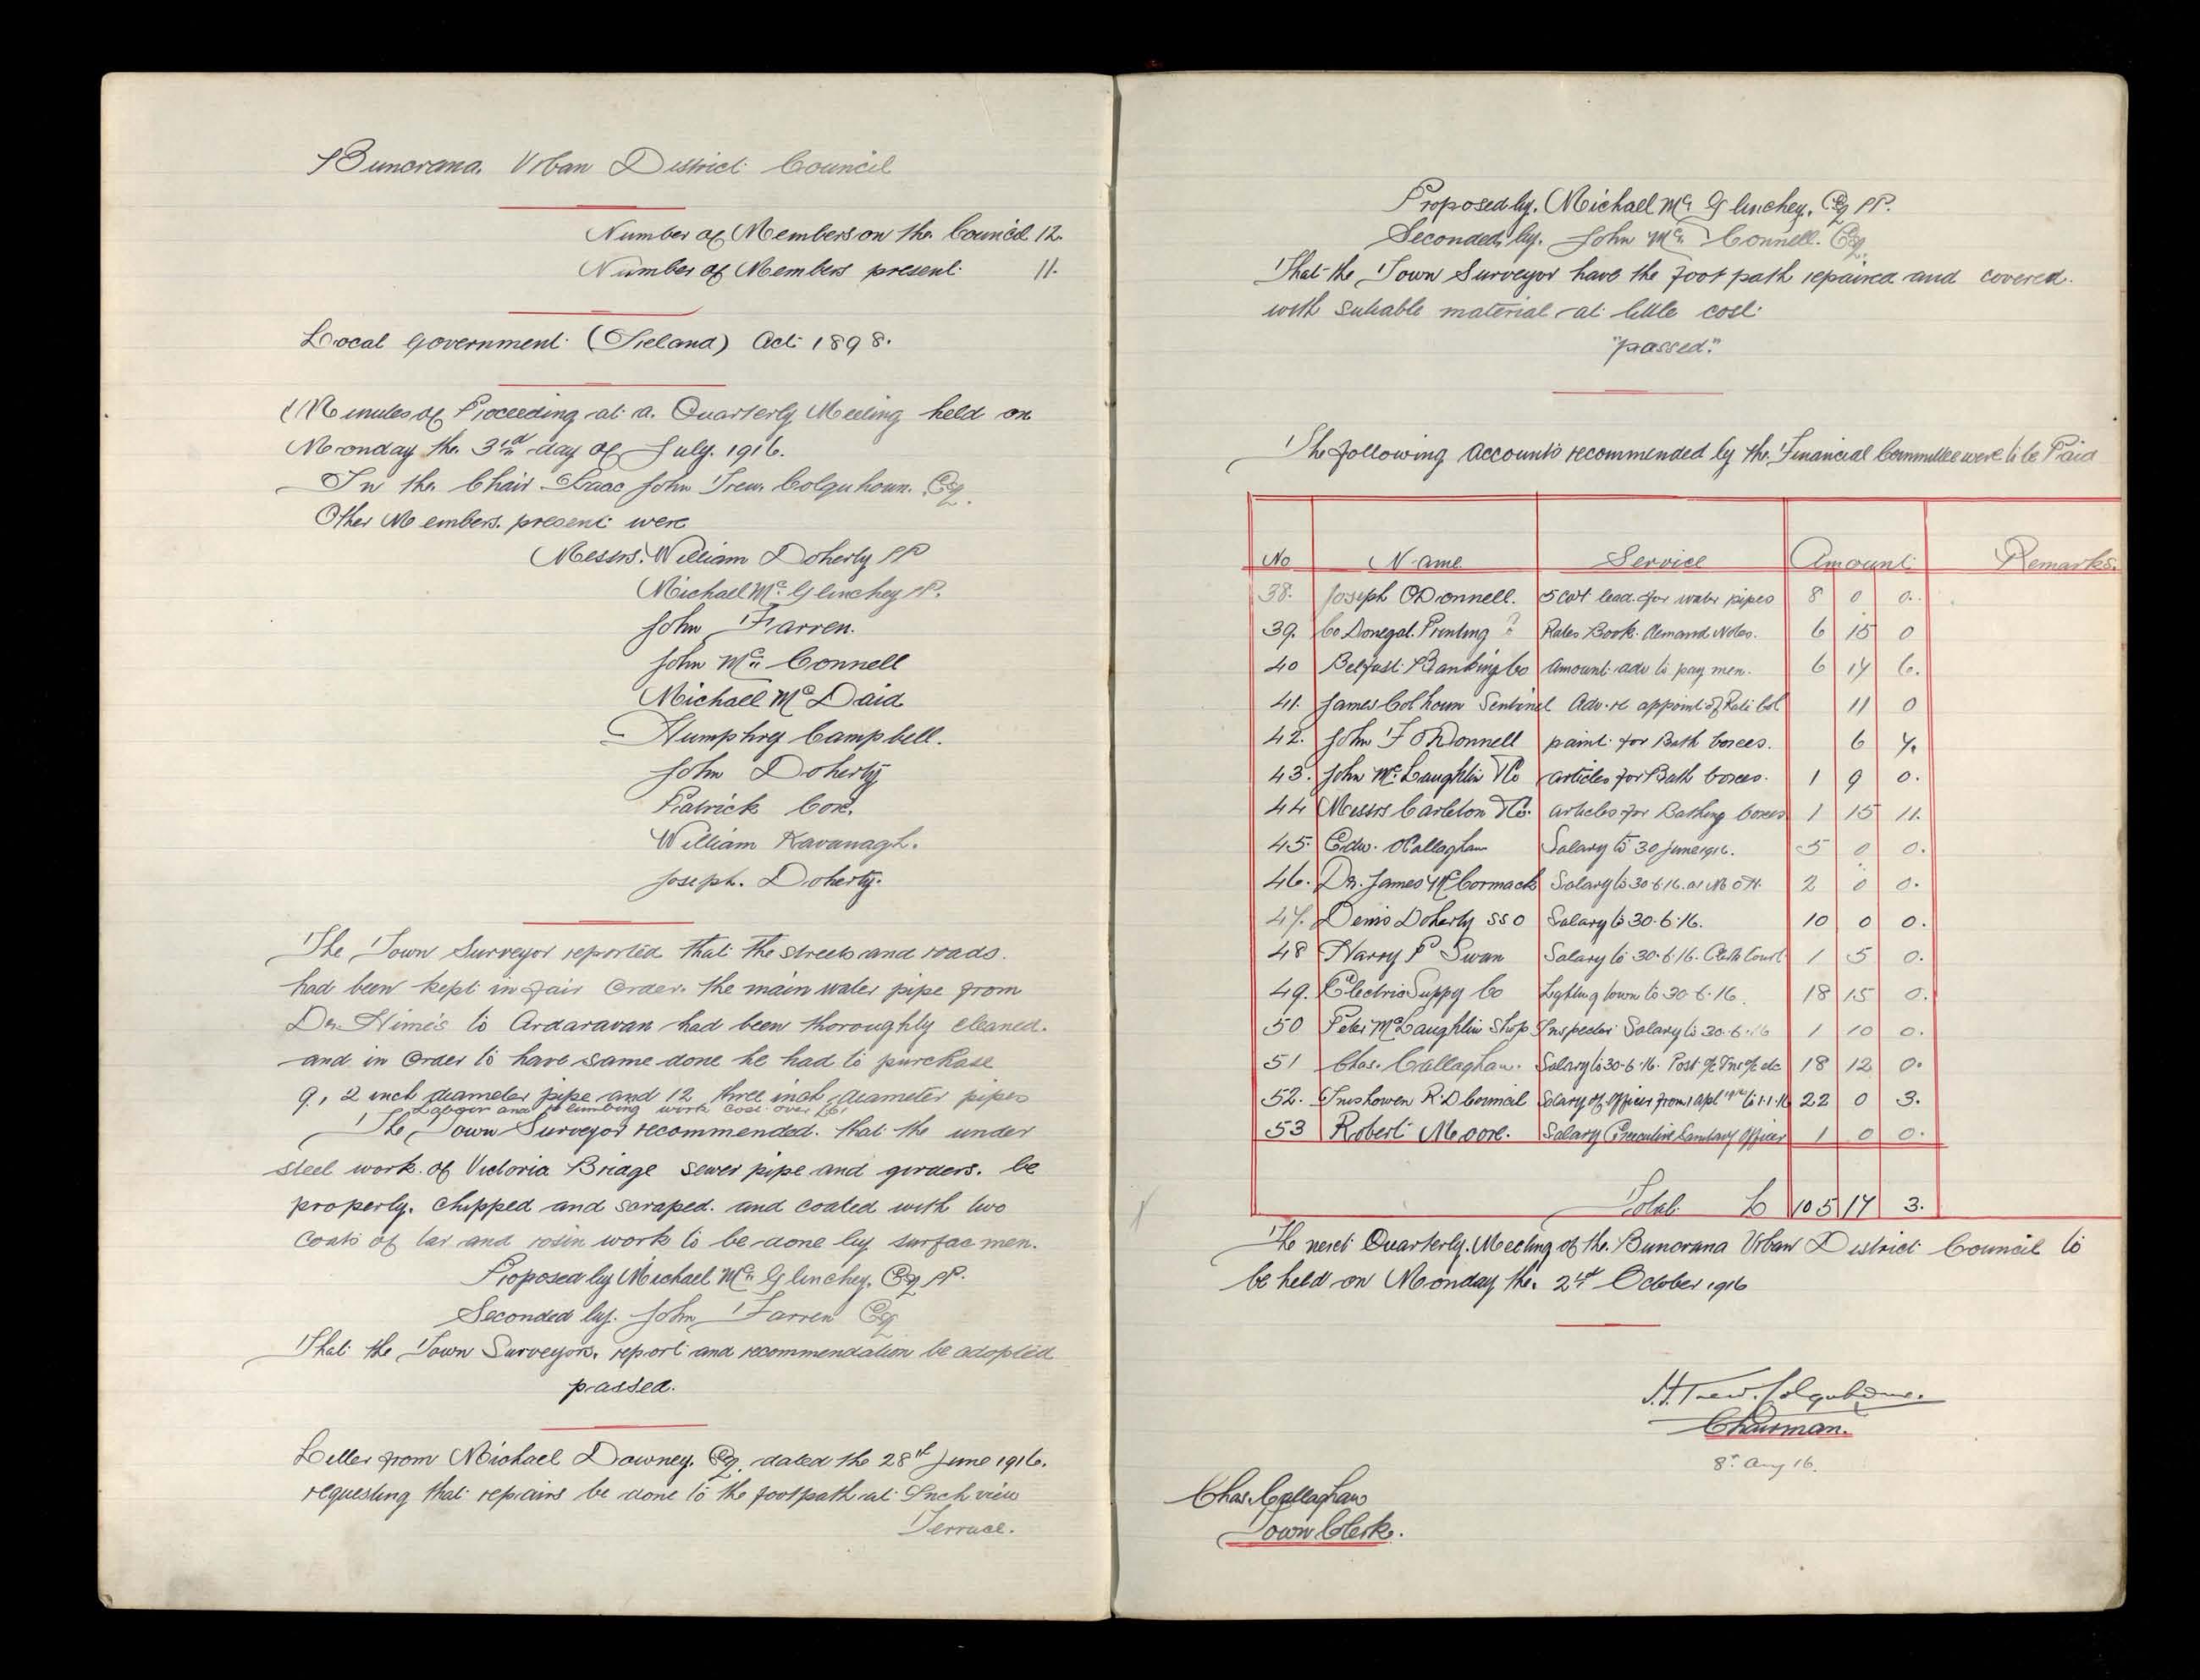 Buncrana Urban District Council
Number of Members on the Council 12.
Number of Members present 11.
Local Government (Ireland) Act 1898.
Minutes of Proceeding at a Quarterly Meeting held on
Monday the 3rd day of July. 1916.
In the Chair Isaac John Trew Colquhoun. Esq.
Other Members present were
Messrs. William Doherty JP
Michael Mc Glinchey JP.
John Farren.
John Mc Connell
Michael Mc Daid
Humphrey Campbell.
John Doherty
Patrick Coxe.
William Kavanagh.
Joseph. Doherty.
The Town Surveyor reported that the streets and roads.
had been kept in fair order. the main water pipe from
Dr. Hime's to Ardaravan had been thoroughly cleaned.
and in order to have same done he had to purchase
9, 2 inch diameter pipe and 12 three inch diameter pipes
Labour and plumbing work cost over £6.
The Town Surveyor recommended. that the under
steel work of Victoria Bridge sewer pipe and girders. be
properly. chipped and scraped. and coated with two
coats of tar and rosin work to be done by surfacmen.
Proposed by Michael Mc Glinchey, Esq JP.
Seconded by. John Farren Esq
That the Town Surveyors. report and recommendation be adopted
passed.
Letter from Michael Downey. Esq. dated the 28th June 1916.
requesting that repairs be done to the footpath at Inch view
Terrace.
Proposed by. Michael Mc Glinchey. Esq JP.
Seconded by. John Mc Connell. Esq.
That the Town Surveyor have the foot path repaired and covered.
with suitable material at little cost.
"passed."
The following Accounts recommended by the Financial Committee were to be Paid
No Name Service Amount Remarks.
38. Joseph O'Donnell. 5 cwt lead for water pipes 8 0 0.
39. Co Donegal. Printing Rates Book. Demand Notes. 6 15 0
40 Belfast Banking Co Amount adv to pay men. 6 17 6.
41. James Colhoun Sentinel Adv. re appoint of Rate Col 11 0
42. John F O'Donnell paint for Bath boxes. 6 7.
43. John Mc Laughlin & Co articles for Bath boxes. 1 9 0.
44 Messrs Carleton & Co. articles for Bathing boxes 1 15 11.
45. Edw. O'Callaghan Salary to 30 June 1916. 5 0 0.
46. Dr. James McCormack Salary to 30.6.16. as M O H. 2 0 0.
47. Denis Doherty SSO Salary to 30.6.16. 10 0 0.
48 Harry P Swan Salary to 30.6.16. Clerk Court 1 5 0.
49. Electric Suppy Co Lighting town to 30.6.16. 18 15 0.
50 Peter McLaughlin Shop Inspector Salary to 30.6.16 1 10 0.
51 Chas. Callaghan. Salary to 30.6.16. Post % Ins % etc 18 12 0.
52. Inishowen R. D Council Salary of Officers from 1 Apl to 1.1.16 22 0 3.
53 Robert Moore. Salary Executive Sanitary Officer 1 0 0.
Total £ 105 17 3.
The next Quarterly. Meeting of the. Buncrana Urban District Council to
be held on Monday the. 2nd October 1916
I. J. Trew. Colquhoun.
Chairman.
8th Aug 16.
Chas. Callaghan
Town Clerk.